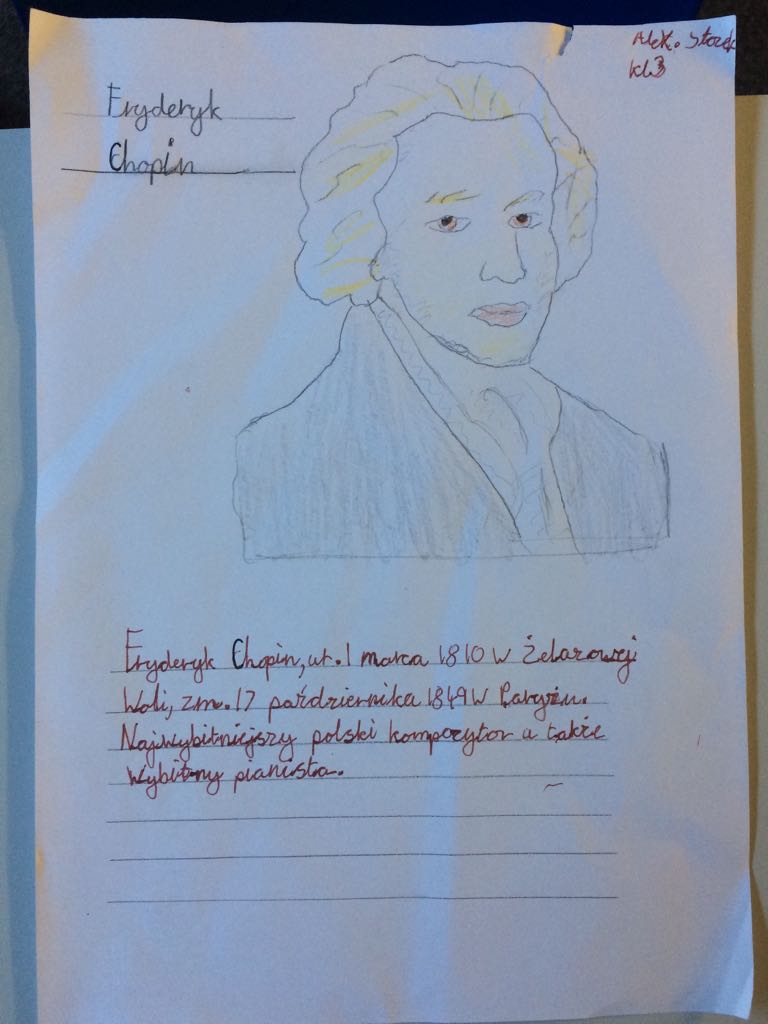 Fryderyk
Chopin
Alek.
kl3
Fryderyk Chopin, ur. 1 marca 1810 w Żelazowej
Woli, zm. 17 października 1849 w Paryżu.
Najwybitniejszy polski kompozytor a także
wybitny pianista.